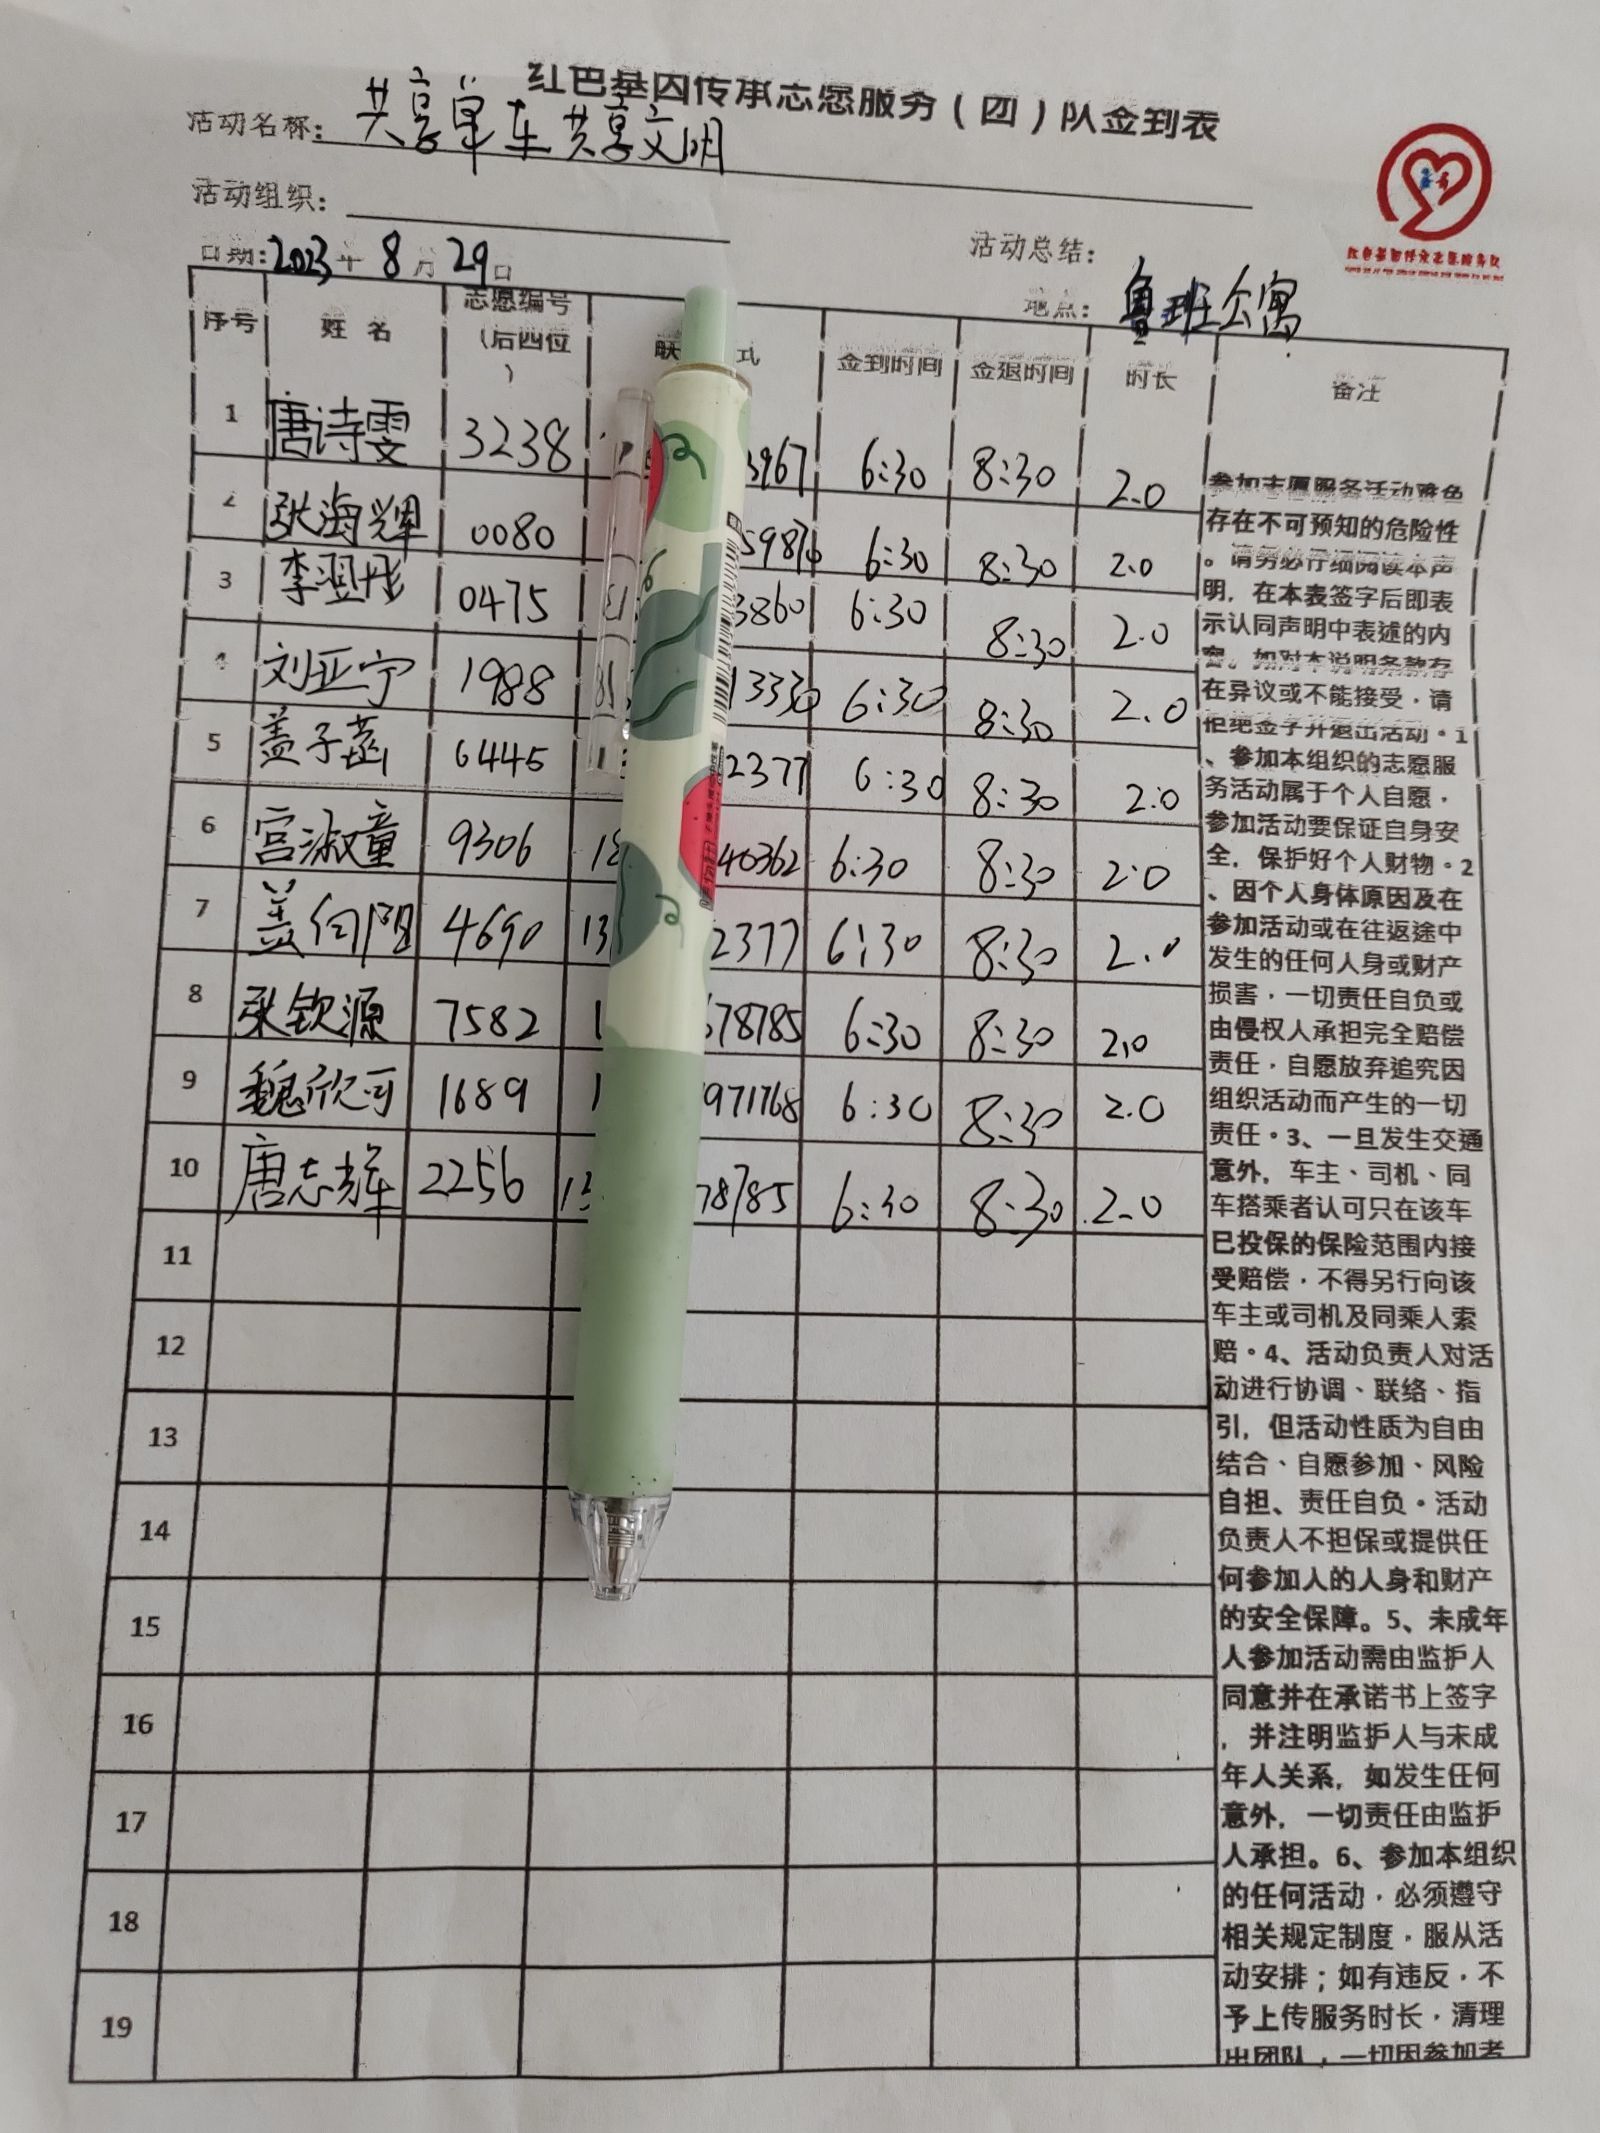 红色基因传承志愿服务（四）队签到表
活动名称：共享单车 共享文明
活动组织：
活动总结：
日期：2023年8月29日
地点：鲁班公寓
序号 姓名 志愿编号（后四位） 联 式 签到时间 签退时间 时长 备注
1 唐诗雯 3238 3967 6:30 8:30 2.0
2 张海辉 0080 6:30 8:30 2.0
3 李 彤 0475 3860 6:30 8:30 2.0
4 刘亚宁 1988 13330 6:30 8:30 2.0
5 盖子菡 6445 2377 6:30 8:30 2.0
6 宫淑童 9306 18 40362 6:30 8:30 2.0
7 盖向阳 4690 13 2377 6:30 8:30 2.0
8 张钦源 7582 1 78785 6:30 8:30 2.0
9 魏欣可 1689 1 971768 6:30 8:30 2.0
10 唐志辉 2256 13 78785 6:30 8:30 2.0
11
12
13
14
15
16
17
18
19
参加志愿服务活动难免
存在不可预知的危险性
。请务必仔细阅读本声
明，在本表签字后即表
示认同声明中表述的内
容。如对本说明条款存
在异议或不能接受，请
拒绝签字并退出活动。1
、参加本组织的志愿服
务活动属于个人自愿，
参加活动要保证自身安
全，保护好个人财物。2
、因个人身体原因及在
参加活动或在往返途中
发生的任何人身或财产
损害，一切责任自负或
由侵权人承担完全赔偿
责任，自愿放弃追究因
组织活动而产生的一切
责任。3、一旦发生交通
意外，车主、司机、同
车搭乘者认可只在该车
已投保的保险范围内接
受赔偿，不得另行向该
车主或司机及同乘人索
赔。4、活动负责人对活
动进行协调、联络、指
引，但活动性质为自由
结合、自愿参加、风险
自担、责任自负。活动
负责人不担保或提供任
何参加人的人身和财产
的安全保障。5、未成年
人参加活动需由监护人
同意并在承诺书上签字
，并注明监护人与未成
年人关系，如发生任何
意外，一切责任由监护
人承担。6、参加本组织
的任何活动，必须遵守
相关规定制度，服从活
动安排；如有违反，不
予上传服务时长，清理
出团队，一切因参加者